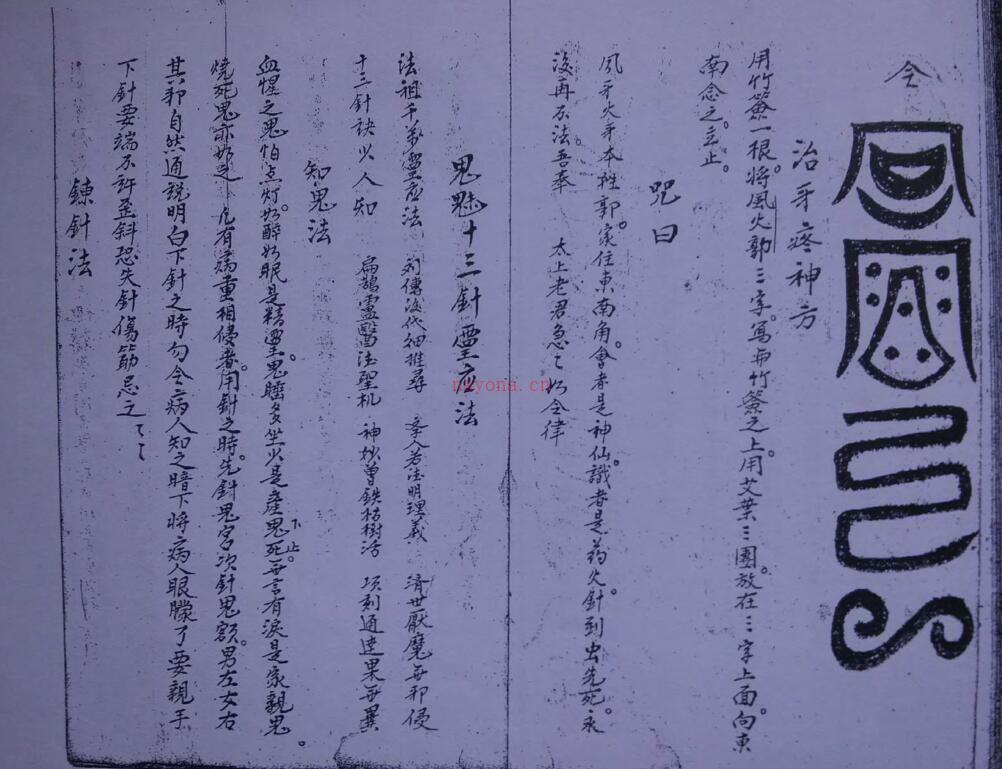 仝
治牙疼神方
用竹簽一根。將風火郭三字。写与竹簽之上。用艾葉三團。放在三字上面。向東
南念之。立止。
咒曰
風牙火牙本姓郭。家住東南角。會者是神仙。識者是药火。針到虫先死。永
後再不法。吾奉 太上老君急〻如令律
鬼魅十三針靈应法
法祖千苐靈应法 刘傳後代細推尋 李人若法明理義 濟世厭魔無邪侵
十三針訣少人知 扁鵲靈醫法聖机 神妙曾鉄枯樹活 項刻通達果無異
知鬼法
血惺之鬼怕点灯。如醉如眠是精靈。鬼瞎多坐火是產鬼死。無言有淚是家親鬼。
下止。
燒死鬼亦如之 凡有病重相侵者。用針之時。先針鬼宮次針鬼額。男左女右
其邪自然通説明白下針之時勿令病人知之暗下將病人眼朦了要親手
下針要端不許歪斜恐失針傷筋忌之〻〻
鍊針法
nayona.cn